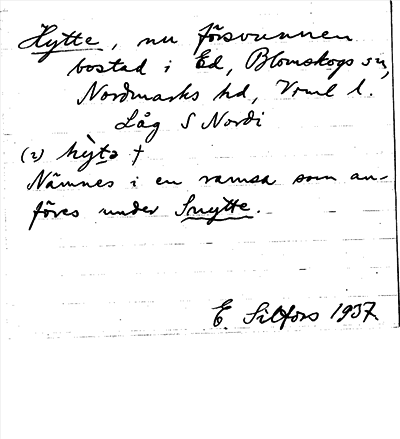 Hytte, nu försvunnen
bostad i Ed, Blomskogs sn,
Nordmarks hd, Vrml l.
Låg S Nordi
(2) hỳtə †
Nämnes i en ramsa som an-
föres under Snytte.
E. Silfors 1937